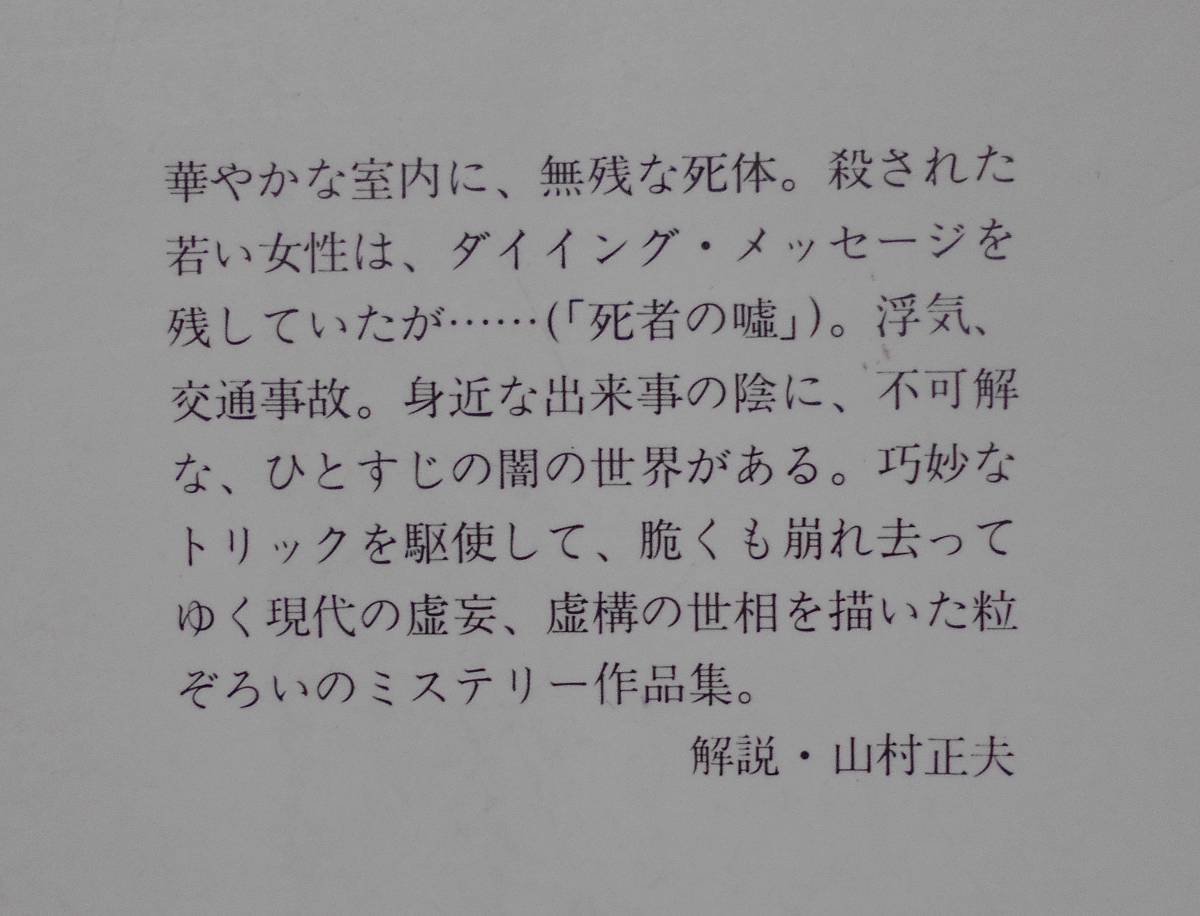 華やかな室内に、無残な死体。殺された
若い女性は、ダイイング・メッセージを
残していたが……(「死者の嘘」)。浮気、
交通事故。身近な出来事の陰に、不可解
な、ひとすじの闇の世界がある。巧妙な
トリックを駆使して、脆くも崩れ去って
ゆく現代の虚妄、虚構の世相を描いた粒
ぞろいのミステリー作品集。
解説・山村正夫